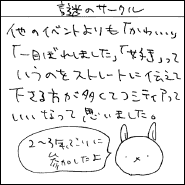 謎のサークル
他のイベントよりも「かわいい」
「一目ぼれしました」「好き」って
いうのをストレートに伝えて
下さる方が多くてコミティアって
いいなって思いました。
2～3年ぶりに
参加したよ